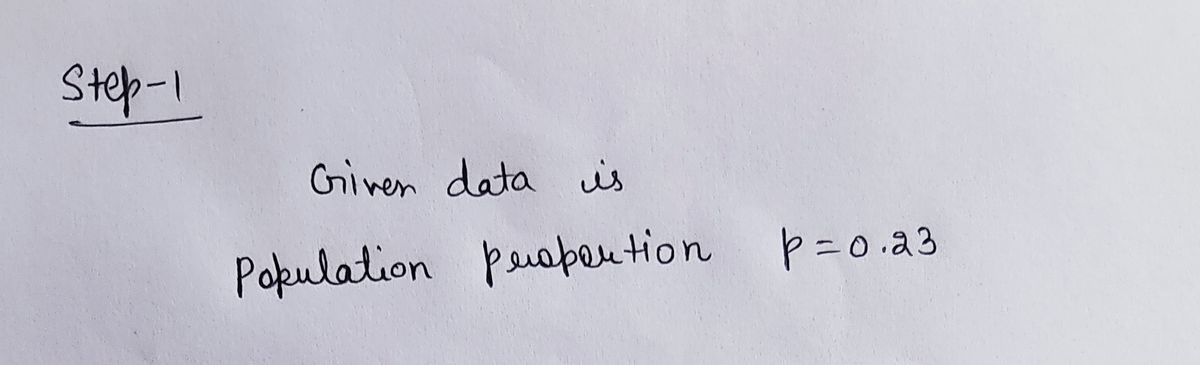 Step-1
Given data is
Population proportion p = 0.23